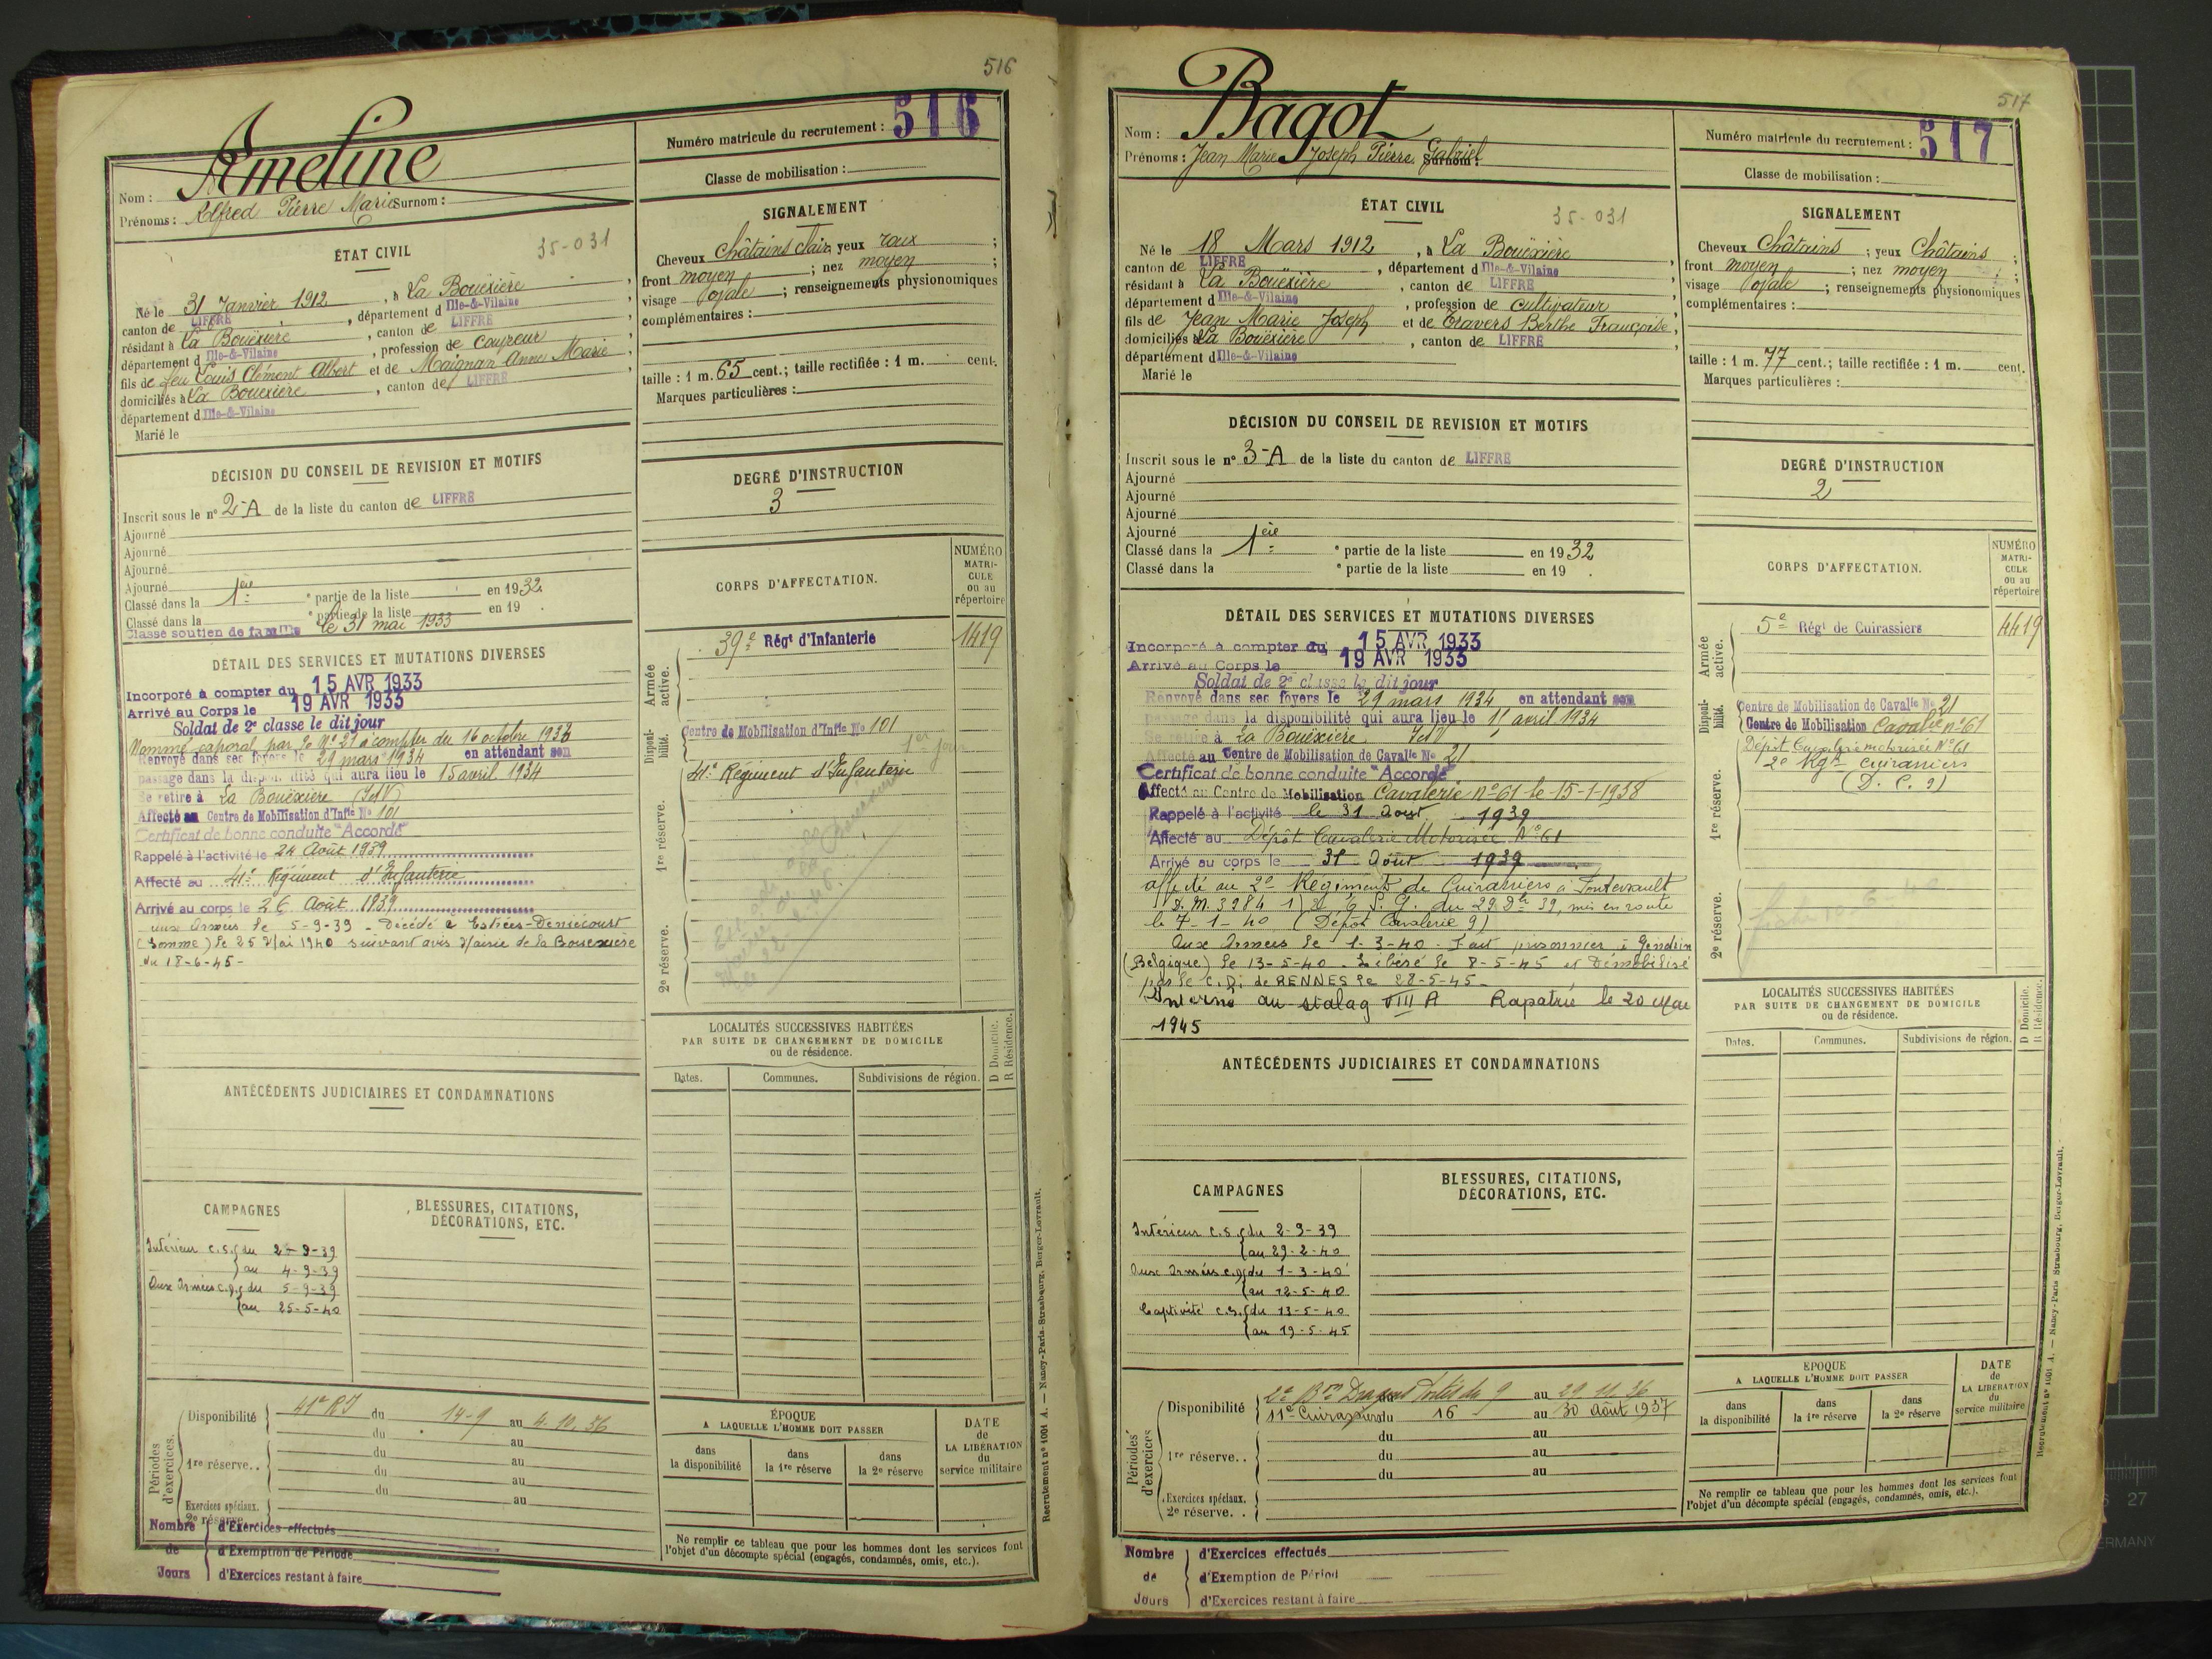 516
Ameline
Nom :
Prénoms : Alfred Pierre Marie Surnom :
Numéro matricule du recrutement : 516
Classe de mobilisation :
ÉTAT CIVIL
35-031
Né le 31 Janvier 1912, à La Bouëxière,
canton de LIFFRÉ, département d Ille-&-Vilaine
résidant à La Bouëxière, canton de LIFFRÉ
département d Ille-&-Vilaine, profession de couvreur
fils de feu Louis Clément Albert et de Maignan Anne Marie,
domiciliés à La Bouëxière, canton de LIFFRÉ
département d Ille-&-Vilaine
Marié le
SIGNALEMENT
Cheveux Châtains clair, yeux roux ;
front moyen ; nez moyen ;
visage ovale ; renseignements physionomiques
complémentaires :
taille : 1 m. 65 cent.; taille rectifiée : 1 m. cent.
Marques particulières :
DÉCISION DU CONSEIL DE REVISION ET MOTIFS
Inscrit sous le n° 2-A de la liste du canton de LIFFRÉ
Ajourné
Ajourné
Ajourné
Ajourné
Classé dans la 1ère ° partie de la liste en 1932
Classé dans la ° partie de la liste en 19 .
Classé soutien de famille le 31 mai 1933
DEGRÉ D'INSTRUCTION
3
DÉTAIL DES SERVICES ET MUTATIONS DIVERSES
Incorporé à compter du 15 AVR 1933
Arrivé au Corps le 19 AVR 1933
Soldat de 2e classe le dit jour
Nommé caporal par O. N° 21 à compter du 16 octobre 1933
Renvoyé dans ses foyers le 29 mars 1934 en attendant son
passage dans la disponibilité qui aura lieu le 15 avril 1934
Se retire à La Bouëxière (I&V)
Affecté au Centre de Mobilisation d'Infie No 101
Certificat de bonne conduite "Accordé"
Rappelé à l'activité le 24 Août 1939
Affecté au 41e Régiment d'Infanterie
Arrivé au corps le 26 Août 1939
aux Armées le 5-9-39 - Décédé à Estrées-Deniécourt
(Somme) le 25 Mai 1940 suivant avis Mairie de la Bouexière
du 18-6-45-
CORPS D'AFFECTATION.
NUMÉRO MATRICULE ou au répertoire
Armée active.
39e Régt d'Infanterie 1419
Disponibilité.
Centre de Mobilisation d'Infie No 101
1er jour
1re réserve.
41e Régiment d'Infanterie
2e réserve.
ANTÉCÉDENTS JUDICIAIRES ET CONDAMNATIONS
LOCALITÉS SUCCESSIVES HABITÉES
PAR SUITE DE CHANGEMENT DE DOMICILE
ou de résidence.
D Domicile.
R Résidence.
Dates. Communes. Subdivisions de région.
CAMPAGNES
Intérieur c.s. du 2-9-39
au 4-9-39
Aux Armées c.d. du 5-9-39
au 25-5-40
BLESSURES, CITATIONS,
DÉCORATIONS, ETC.
Périodes d'exercices.
Disponibilité 41e RI du 14-9 au 4.10.36
du au
1re réserve. . du au
du au
du au
Exercices spéciaux.
2e réserve. .
Nombre de Jours
d'Exercices effectués
d'Exemption de Période
d'Exercices restant à faire
ÉPOQUE
A LAQUELLE L'HOMME DOIT PASSER
dans la disponibilité
dans la 1re réserve
dans la 2e réserve
DATE de LA LIBÉRATION du service militaire
Ne remplir ce tableau que pour les hommes dont les services font
l'objet d'un décompte spécial (engagés, condamnés, omis, etc.).
Recrutement n° 1001 A. — Nancy-Paris-Strasbourg, Berger-Levrault.
517
Nom : Bagot
Prénoms : Jean Marie Joseph Pierre Gabriel Surnom :
Numéro matricule du recrutement : 517
Classe de mobilisation :
ÉTAT CIVIL
35-031
Né le 18 Mars 1912, à La Bouëxière,
canton de LIFFRÉ, département d Ille-&-Vilaine
résidant à La Bouëxière, canton de LIFFRÉ
département d Ille-&-Vilaine, profession de cultivateur,
fils de Jean Marie Joseph et de Travers Berthe Françoise,
domiciliés à La Bouëxière, canton de LIFFRÉ
département d Ille-&-Vilaine
Marié le
SIGNALEMENT
Cheveux Châtains ; yeux Châtains ;
front moyen ; nez moyen ;
visage ovale ; renseignements physionomiques
complémentaires :
taille : 1 m. 77 cent.; taille rectifiée : 1 m. cent.
Marques particulières :
DÉCISION DU CONSEIL DE REVISION ET MOTIFS
Inscrit sous le n° 3-A de la liste du canton de LIFFRÉ
Ajourné
Ajourné
Ajourné
Ajourné
Classé dans la 1ère ° partie de la liste en 1932
Classé dans la ° partie de la liste en 19 .
DEGRÉ D'INSTRUCTION
2
DÉTAIL DES SERVICES ET MUTATIONS DIVERSES
Incorporé à compter du 15 AVR 1933
Arrivé au Corps le 19 AVR 1933
Soldat de 2e classe le dit jour
Renvoyé dans ses foyers le 29 mars 1934 en attendant son
passage dans la disponibilité qui aura lieu le 1r avril 1934
Se retire à La Bouëxière. I&V
Affecté au Centre de Mobilisation de Cavalie No 21
Certificat de bonne conduite "Accordé"
Affecté au Centre de Mobilisation Cavalerie n°61 le 15-1-1938
Rappelé à l'activité le 31 Août 1939
Affecté au Dépôt Cavalerie Motorisée N°61
Arrivé au corps le 31 Août 1939
affecté au 2e Régiment de Cuirassiers à Fontevrault
D.M. 3984 1/ 6 S.G. du 29 Dre 39, mis en route
le 7-1-40 (Dépôt Cavalerie 9)
Aux Armées le 1-3-40. Fait prisonnier à Gendrin
(Belgique) le 13-5-40. Libéré le 8-5-45 et Démobilisé
par le C.D. de RENNES le 28-5-45-
Interné au stalag VIII A Rapatrié le 20 Mai
1945
CORPS D'AFFECTATION.
NUMÉRO MATRICULE ou au répertoire
Armée active.
5e Régt de Cuirassiers 4419
Disponibilité.
Centre de Mobilisation de Cavalie No 21
Centre de Mobilisation Cavalie n°61
1re réserve.
Dépôt Cavalerie motorisée N°61
2e Rgt Cuirassiers
(D.C. 9)
2e réserve.
ANTÉCÉDENTS JUDICIAIRES ET CONDAMNATIONS
LOCALITÉS SUCCESSIVES HABITÉES
PAR SUITE DE CHANGEMENT DE DOMICILE
ou de résidence.
D Domicile.
R Résidence.
Dates. Communes. Subdivisions de région.
CAMPAGNES
Intérieur c.s. du 2-9-39
au 29-2-40
Aux Armées c.d. du 1-3-40
au 12-5-40
Captivité c.s. du 13-5-40
au 19-5-45
BLESSURES, CITATIONS,
DÉCORATIONS, ETC.
Périodes d'exercices
Disponibilité 2e Bon Dragons Portés du 9 au 29.11.36
11e Cuirassiers du 16 au 30 Août 1937
du au
1re réserve. . du au
du au
Exercices spéciaux.
2e réserve. .
Nombre de Jours
d'Exercices effectués
d'Exemption de Période
d'Exercices restant à faire
ÉPOQUE
A LAQUELLE L'HOMME DOIT PASSER
dans la disponibilité
dans la 1re réserve
dans la 2e réserve
DATE de LA LIBÉRATION du service militaire
Ne remplir ce tableau que pour les hommes dont les services font
l'objet d'un décompte spécial (engagés, condamnés, omis, etc.).
Recrutement n° 1001 A. — Nancy-Paris Strasbourg, Berger-Levrault.
27